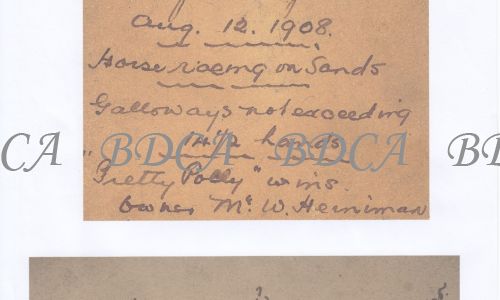 Aug. 12. 1908.
Horse racing on Sands
Galloways not exceeding
14½ hands
"Pretty Polly" wins.
Owner Mr. W. Herniman
BDCA BDCA BD